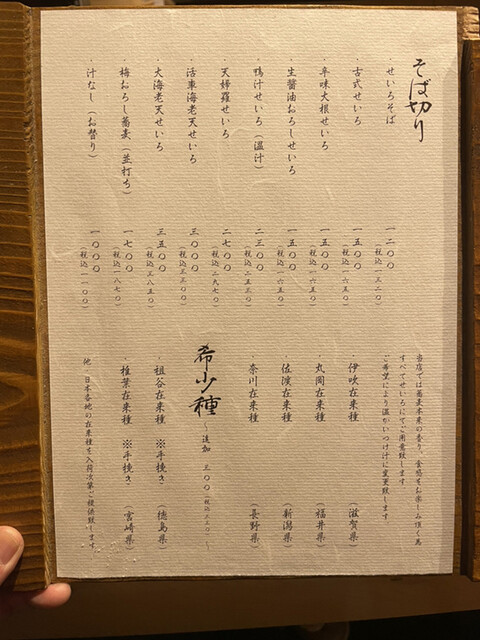 そば切り
・せいろそば 一二〇〇 (税込一三二〇)
・古式せいろ 一五〇〇 (税込一六五〇)
・辛味大根せいろ 一五〇〇 (税込一六五〇)
・生醤油おろしせいろ 一五〇〇 (税込一六五〇)
・鴨汁せいろ(温汁) 二三〇〇 (税込二五三〇)
・天婦羅せいろ 二七〇〇 (税込二九七〇)
・活車海老天せいろ 三〇〇〇 (税込三三〇〇)
・大海老天せいろ 三五〇〇 (税込三八五〇)
・梅おろし蕎麦(並打ち) 一七〇〇 (税込一八七〇)
・汁なし(お替り) 一〇〇〇 (税込一一〇〇)
当店では蕎麦本来の香り、食感をお楽しみ頂く為
すべてせいろにてご用意致します
ご希望により温かいつけ汁に変更致します
・伊吹在来種 (滋賀県)
・丸岡在来種 (福井県)
・佐渡在来種 (新潟県)
・奈川在来種 (長野県)
希少種 ~追加 三〇〇(税込三三〇)~
・祖谷在来種 ※手挽き (徳島県)
・椎葉在来種 ※手挽き (宮崎県)
他、日本各地の在来種を入荷次第ご提供致します。